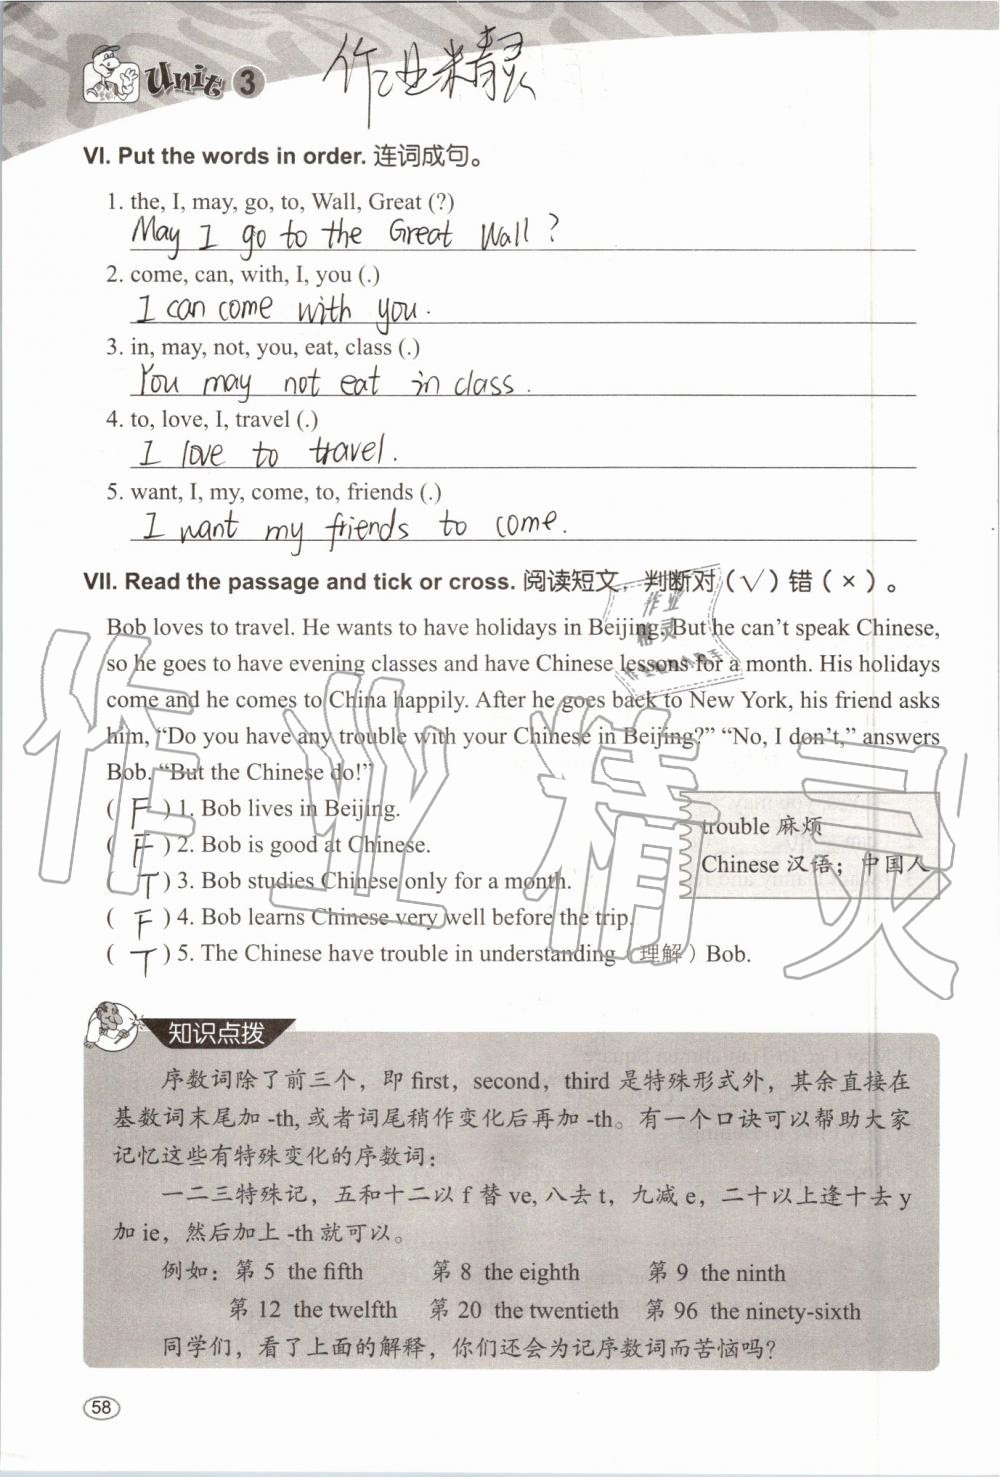 Unit 3
作业精灵
VI. Put the words in order. 连词成句。
1. the, I, may, go, to, Wall, Great (?)
May I go to the Great Wall?
2. come, can, with, I, you (.)
I can come with you.
3. in, may, not, you, eat, class (.)
You may not eat in class.
4. to, love, I, travel (.)
I love to travel.
5. want, I, my, come, to, friends (.)
I want my friends to come.
VII. Read the passage and tick or cross. 阅读短文，判断对（√）错（×）。
Bob loves to travel. He wants to have holidays in Beijing. But he can't speak Chinese,
so he goes to have evening classes and have Chinese lessons for a month. His holidays
come and he comes to China happily. After he goes back to New York, his friend asks
him, “Do you have any trouble with your Chinese in Beijing?” “No, I don't,” answers
Bob. “But the Chinese do!”
( F ) 1. Bob lives in Beijing.
( F ) 2. Bob is good at Chinese.
( T ) 3. Bob studies Chinese only for a month.
( F ) 4. Bob learns Chinese very well before the trip.
( T ) 5. The Chinese have trouble in understanding（理解）Bob.
trouble 麻烦
Chinese 汉语；中国人
知识点拨
序数词除了前三个，即 first，second，third 是特殊形式外，其余直接在
基数词末尾加 -th, 或者词尾稍作变化后再加 -th。有一个口诀可以帮助大家
记忆这些有特殊变化的序数词：
一二三特殊记，五和十二以 f 替 ve, 八去 t，九减 e，二十以上逢十去 y
加 ie，然后加上 -th 就可以。
例如：第 5 the fifth 第 8 the eighth 第 9 the ninth
第 12 the twelfth 第 20 the twentieth 第 96 the ninety-sixth
同学们，看了上面的解释，你们还会为记序数词而苦恼吗？
58
作业精灵
作业
精灵